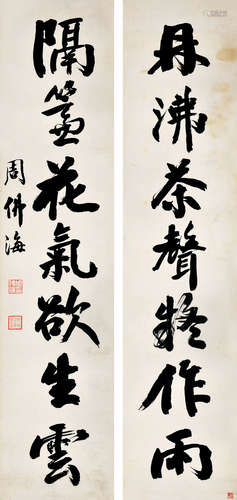 舟沸茶聲疑作雨
隔簾花氣欲生雲
周佛海